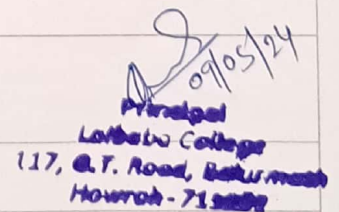 09/05/24
Principal
Lalbaba College
117, G.T. Road, Belurmath
Howrah - 711